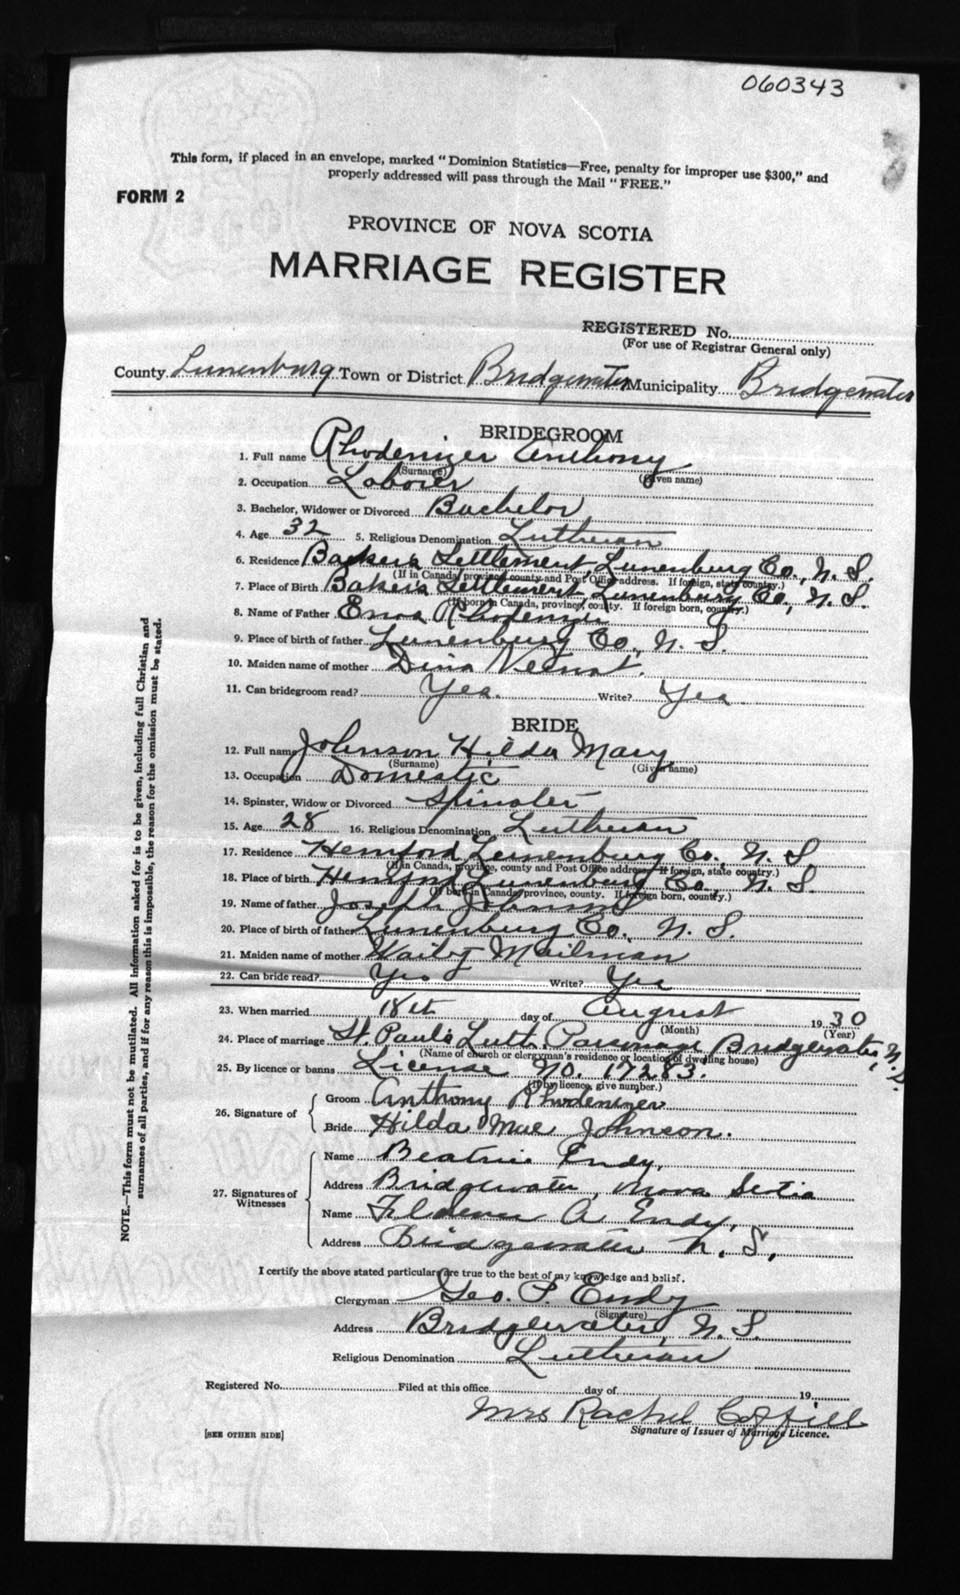 060343
This form, if placed in an envelope, marked "Dominion Statistics—Free, penalty for improper use $300," and
properly addressed will pass through the Mail "FREE."
FORM 2
PROVINCE OF NOVA SCOTIA
MARRIAGE REGISTER
REGISTERED No.
(For use of Registrar General only)
County Lunenburg Town or District Bridgewater Municipality Bridgewater
BRIDEGROOM
1. Full name Rhodenizer Anthony
(Surname) (Given name)
2. Occupation Laborer
3. Bachelor, Widower or Divorced Bachelor
4. Age 32 5. Religious Denomination Lutheran
6. Residence Baker's Settlement, Lunenburg Co., N. S.
(If in Canada, province, county and Post Office address. If foreign, state country.)
7. Place of Birth Baker's Settlement, Lunenburg Co., N. S.
(If born in Canada, province, county. If foreign born, country.)
8. Name of Father Enos Rhodenizer
9. Place of birth of father Lunenburg Co., N. S.
10. Maiden name of mother Dina Veinot.
11. Can bridegroom read? Yes. Write? Yes
BRIDE
12. Full name Johnson Hilda Mary
(Surname) (Given name)
13. Occupation Domestic
14. Spinster, Widow or Divorced Spinster
15. Age 28 16. Religious Denomination Lutheran
17. Residence Hemford Lunenburg Co., N. S.
(If in Canada, province, county and Post Office address. If foreign, state country.)
18. Place of birth Hemford Lunenburg Co., N. S.
(If born in Canada, province, county. If foreign born, country.)
19. Name of father Joseph Johnson
20. Place of birth of father Lunenburg Co., N. S.
21. Maiden name of mother Mailman
22. Can bride read? Yes Write? Yes
23. When married 18th day of August 1930
(Month) (Year)
24. Place of marriage St. Paul's Luth. Parsonage Bridgewater, N. S.
(Name of church or clergyman's residence or location of dwelling house)
25. By licence or banns License No. 17283.
(If by licence, give number.)
26. Signature of Groom Anthony Rhodenizer
Bride Hilda Mae Johnson.
27. Signatures of Witnesses
Name Beatrice Endy,
Address Bridgewater, Nova Scotia
Name A. Endy,
Address Bridgewater N. S.,
I certify the above stated particulars are true to the best of my knowledge and belief.
Clergyman Geo. P. Endy
(Signature)
Address Bridgewater, N. S.
Religious Denomination Lutheran
Registered No. Filed at this office day of 19
Mrs Rachel Coffill
[SEE OTHER SIDE] Signature of Issuer of Marriage Licence.
NOTE.—This form must not be mutilated. All information asked for is to be given, including full Christian and
surnames of all parties, and if for any reason this is impossible, the reason for the omission must be stated.